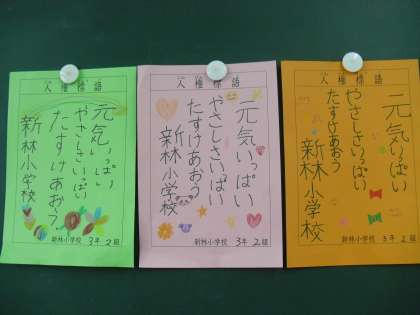 人権標語
元気いっぱい
やさしさいっぱい
たすけあおう
新林小学校
新林小学校 3年 2組
人権標語
元気いっぱい
やさしさいっぱい
たすけあおう
新林小学校
新林小学校 3年 2組
人権標語
元気いっぱい
やさしさいっぱい
たすけあおう
新林小学校
新林小学校 3年 2組